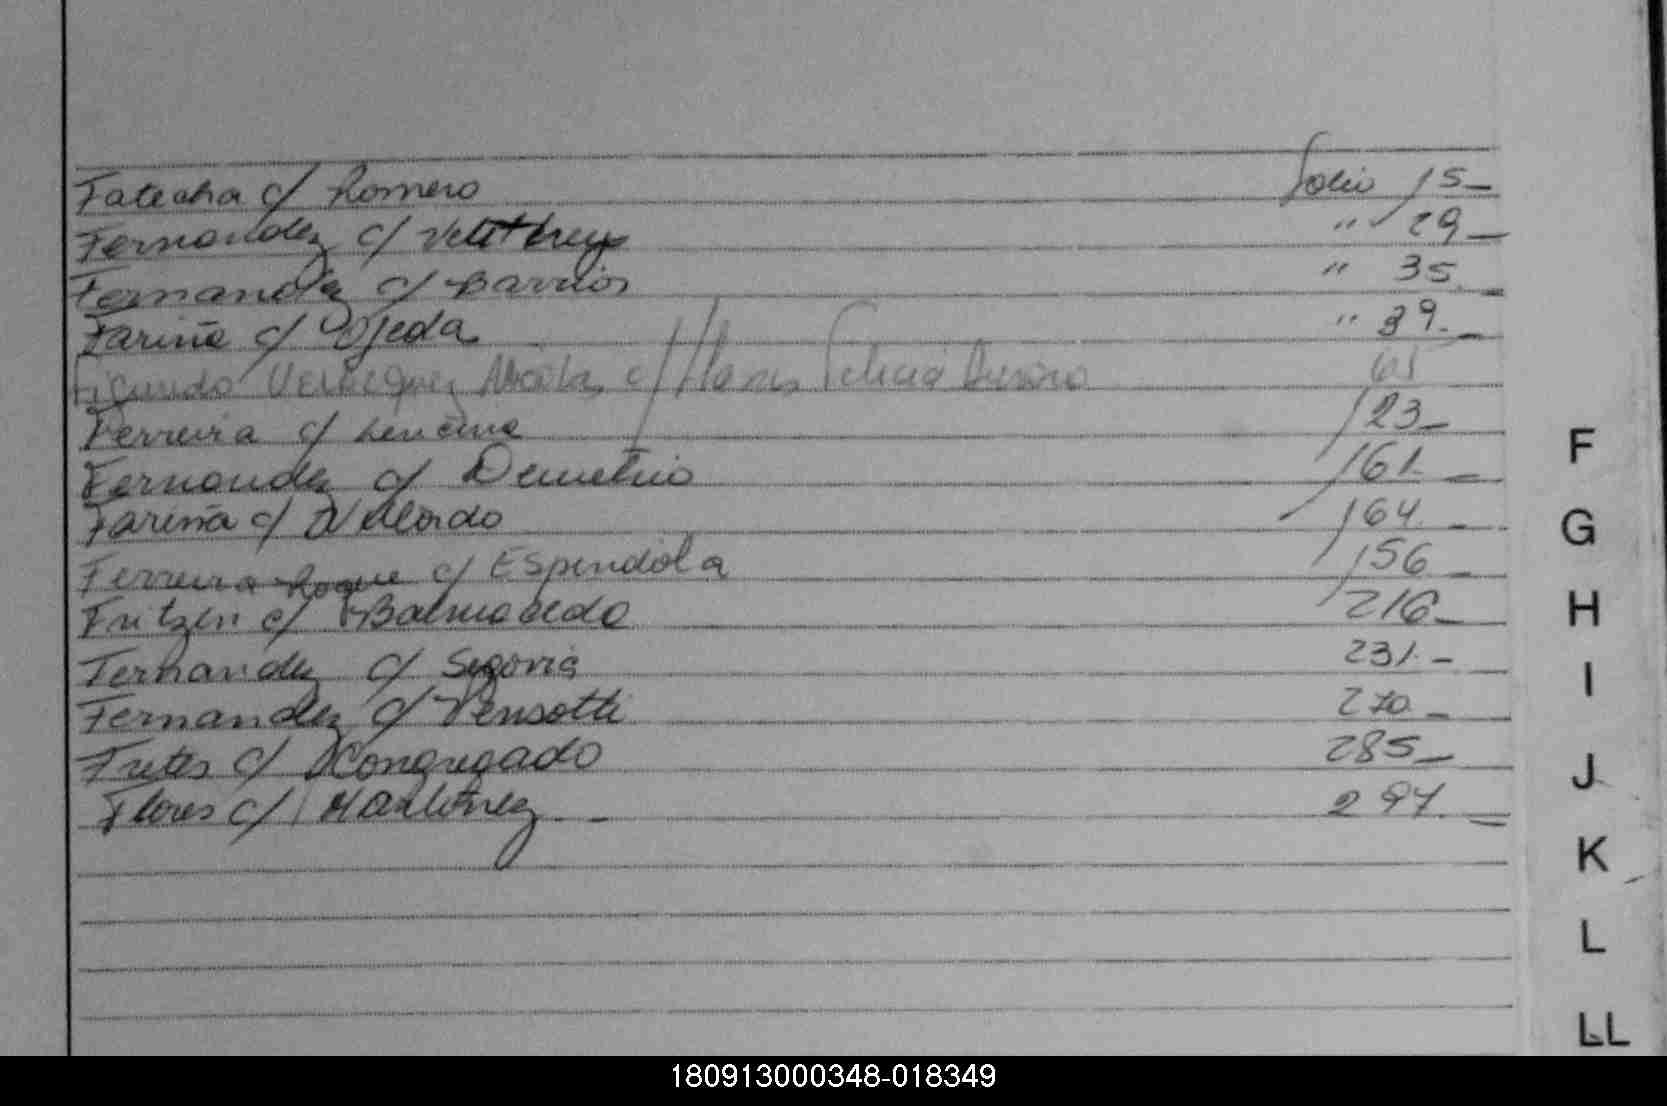 Fatecha c/ Romero Folio 15_
Fernandez c/ " 29_
Fernandez c/ Barrios " 35_
Fariña c/ Ojeda " 39._
c/ Flores Felicia 61
Ferreira c/ Lencina 123_
Fernandez c/ Demetrio 161._
Fariña c/ 164._
Ferreira Roque c/ Espindola 156_
Fritzen c/ Balmaceda 216_
Fernandez c/ Segovia 231._
Fernandez c/ Pensotti 270_
Fretes c/ Congregado 285_
Flores c/ Martinez _ 297._
F
G
H
I
J
K
L
LL
180913000348-018349